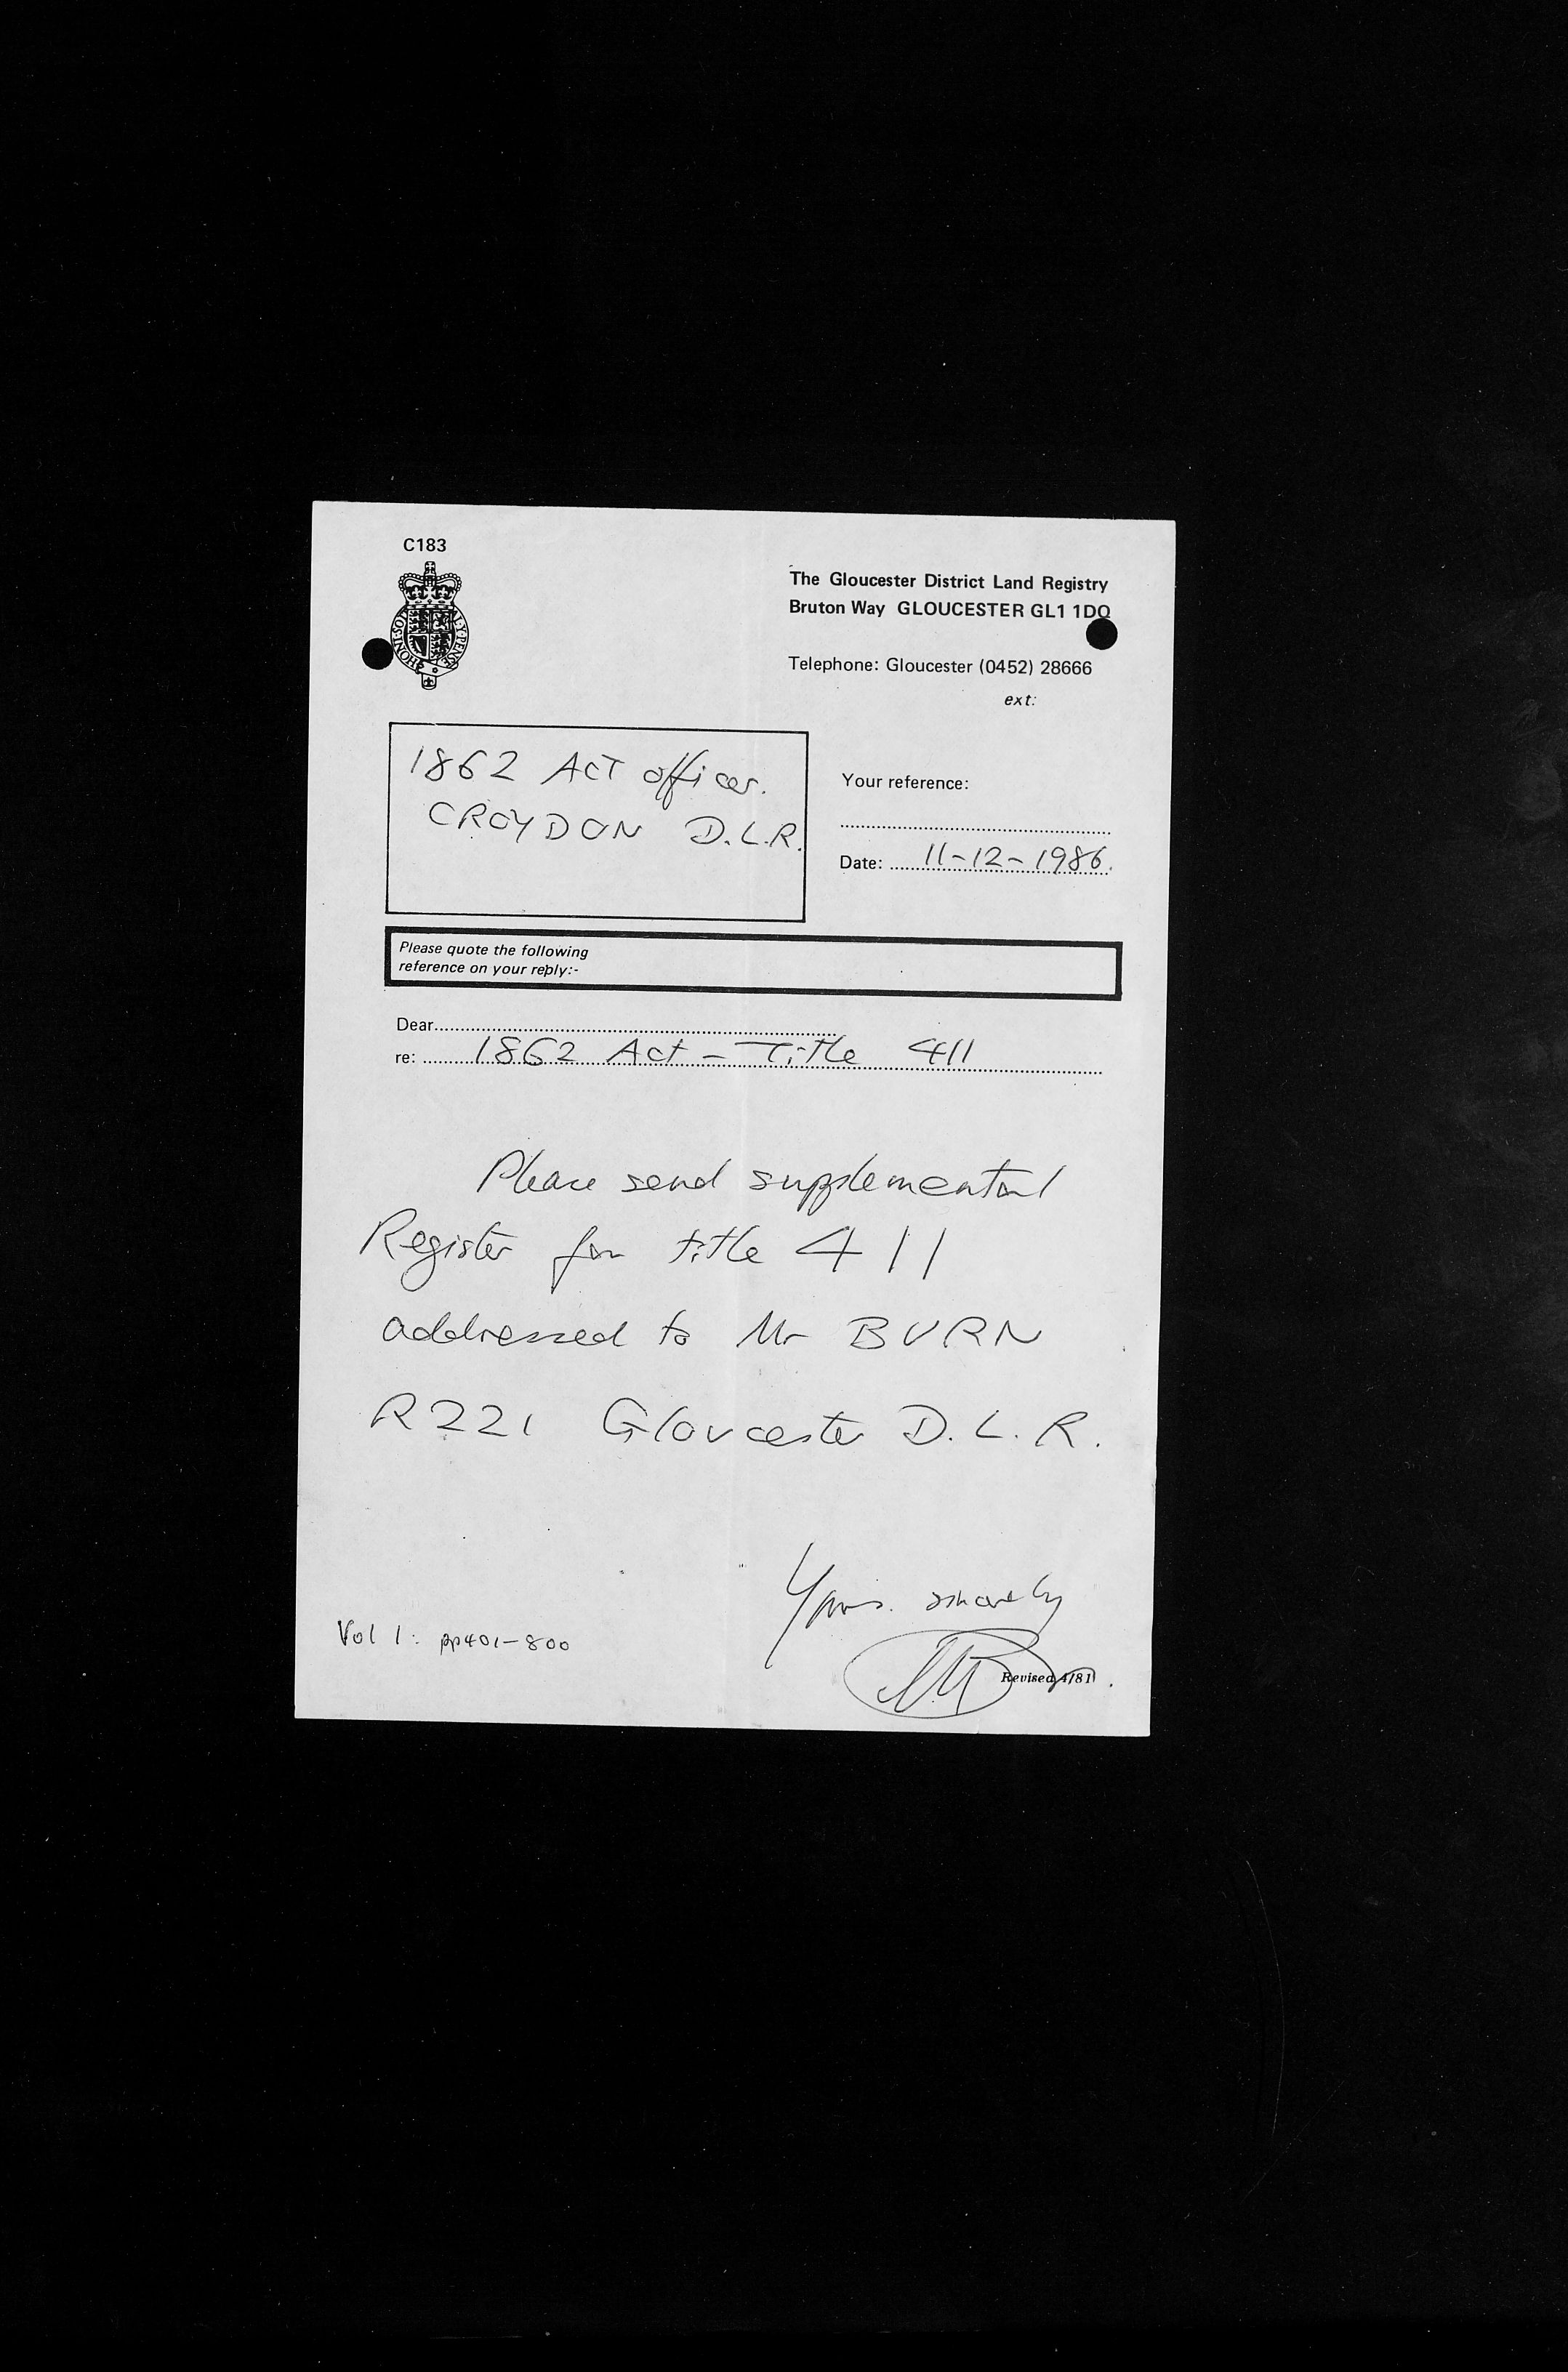 C183
The Gloucester District Land Registry
Bruton Way GLOUCESTER GL1 1DQ
Telephone: Gloucester (0452) 28666
ext:
1862 ACT officer.
CROYDON D.L.R.
Your reference:
Date: 11-12-1986.
Please quote the following
reference on your reply:-
Dear
re: 1862 Act - Title 411
Please send supplemental
Register for title 411
addressed to Mr BURN
R221 Gloucester D.L.R.
Yours sincerely
Vol 1: pp401-800
Revised 4/81